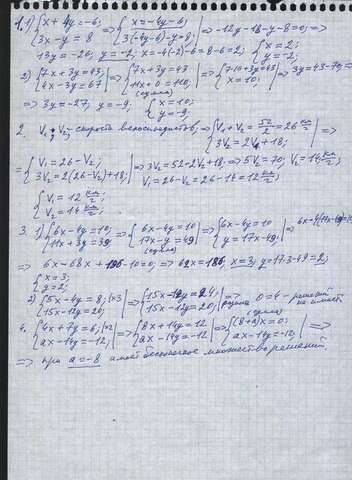 1. 1) {x + 4y = -6; 3x - y = 8 => {x = -4y - 6 3(-4y-6) - y = 8; => -12y - 18 - y - 8 = 0; =>
13y = -26; y = -2, x = -4(-2) - 6 = 8 - 6 = 2; {x = 2; y = -2.
2) {7x + 3y = 43; 4x - 3y = 67 => {7x + 3y = 43 11x + 0 = 110, (сумма) => {7·10 + 3y = 43 x = 10. => 3y = 43 - 70 =>
=> 3y = -27, y = -9. {x = 10; y = -9.
2. V₁ и V₂ - скорость велосипедистов, => {V₁ + V₂ = 52/2 = 26 км/г 3V₁ = 2V₂ + 18; =>
= {V₁ = 26 - V₂; 3V₂ = 2(26 - V₂) + 18; => 3V₂ = 52 - 2V₂ + 18; => 5V₂ = 70, V₂ = 14 км/г
V₁ = 26 - V₂ = 26 - 14 = 12 км/г
{V₁ = 12 км/г; V₂ = 14 км/г;
3. 1) {6x - 4y = 10; 11x + 3y = 39 => {6x - 4y = 10 17x - y = 49 (сумма) => {6x - 4y = 10 y = 17x - 49; =>
=> 6x - 68x + 196 - 10 = 0; => 62x = 186, x = 3, y = 17·3 - 49 = 2;
{x = 3; y = 2;
2) {5x - 4y = 8; |×3 15x - 12y = 20; => {15x - 12y = 24; 15x - 12y = 20; разница 0 = 4 - решений не имеет
4. {4x + 7y = 6; |×2 ax - 14y = -12; => {8x + 14y = 12 ax - 14y = -12 => {(8 + a)x = 0; (сумма) ax - 14y = -12; =>
=> при a = -8 имеет бесконечное множество решений